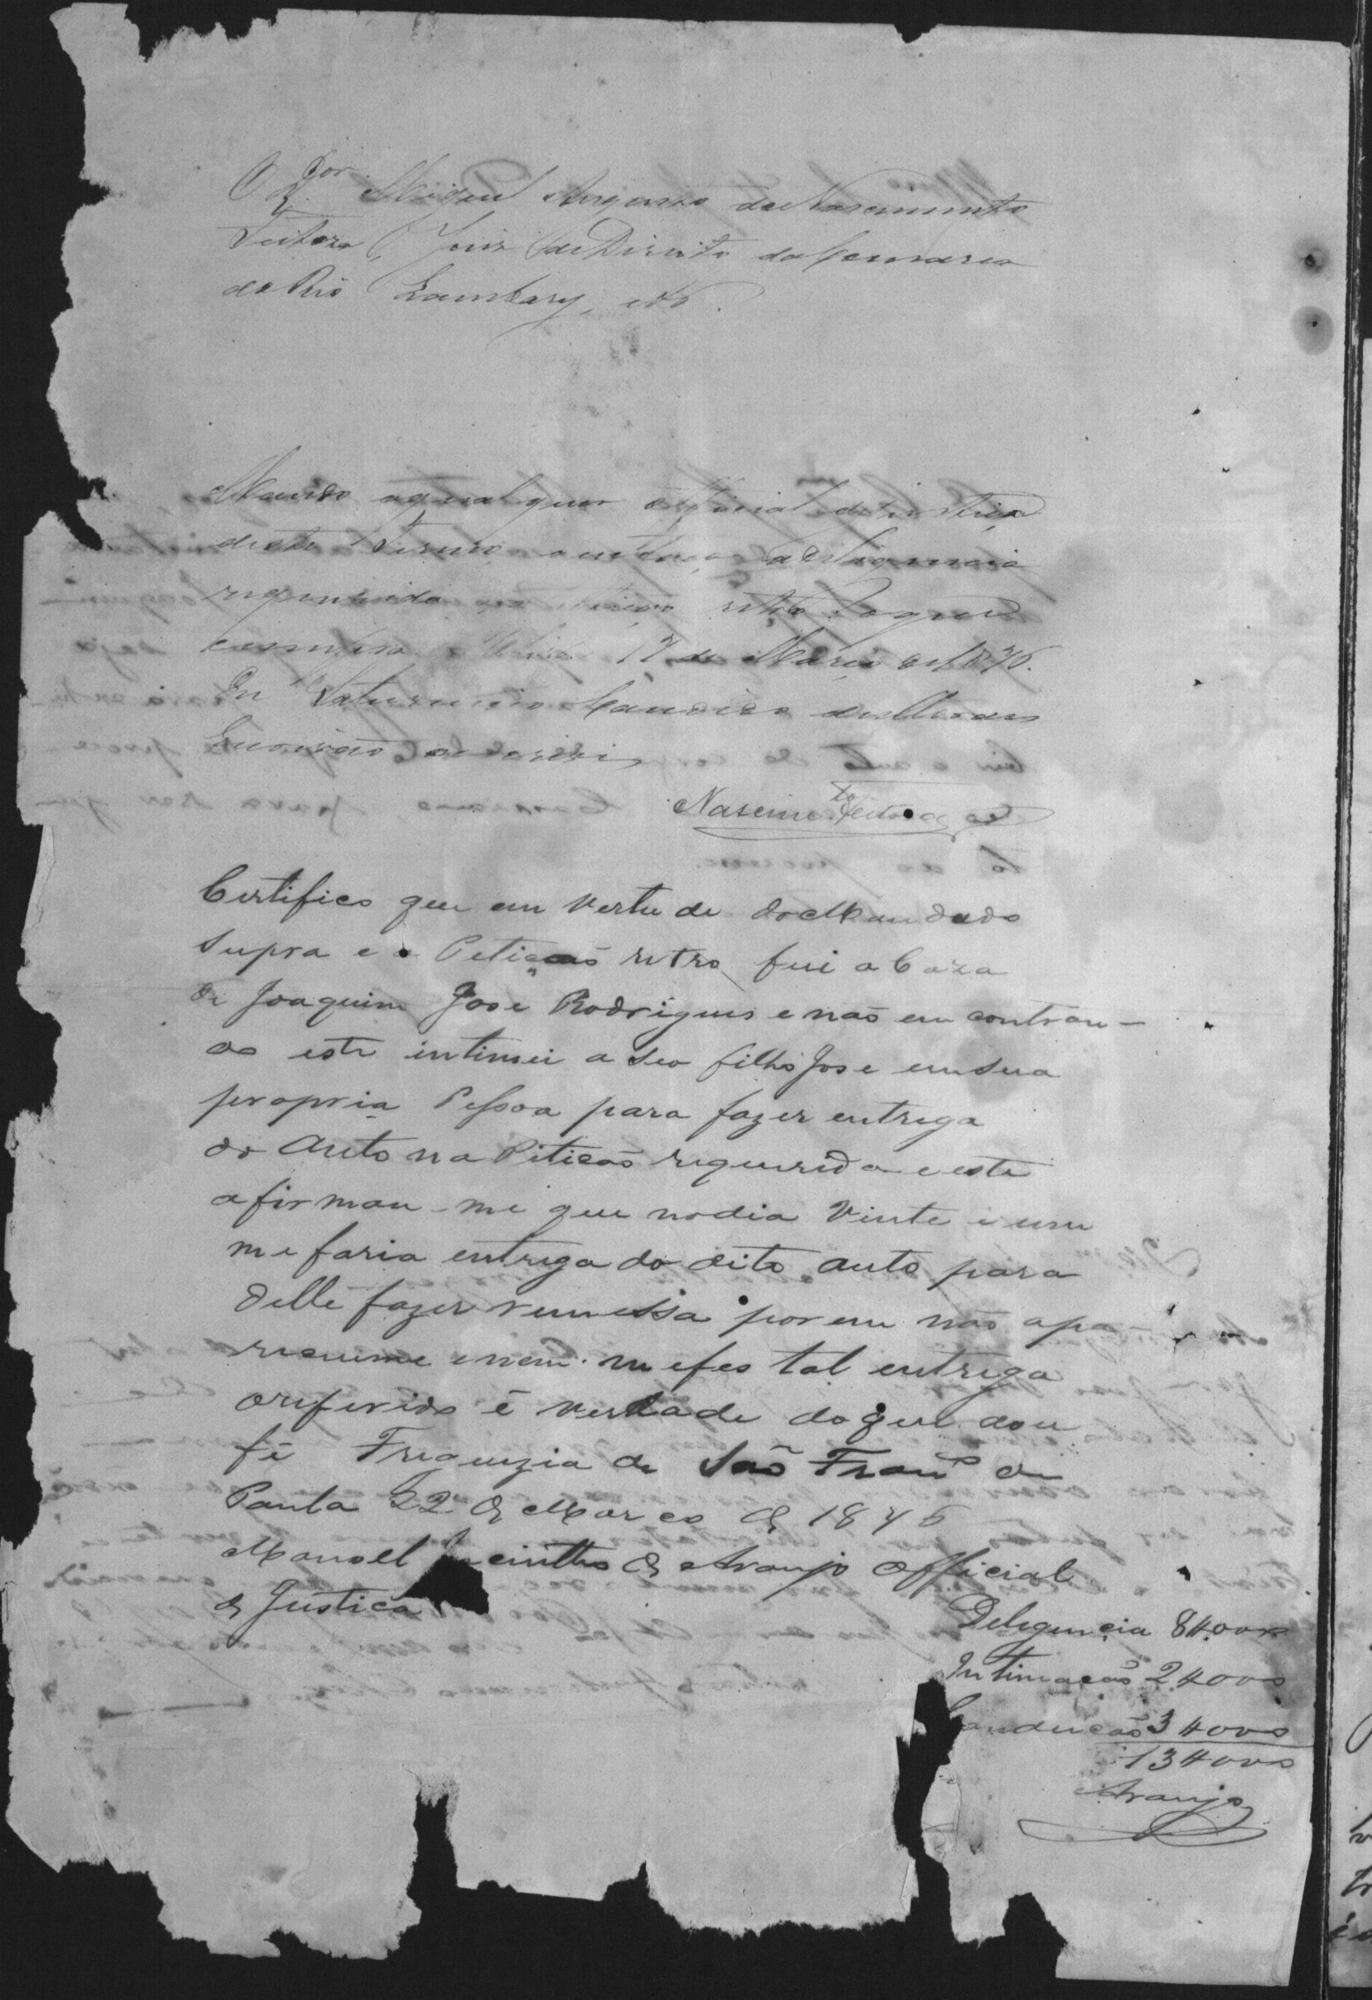 O Dor. Miguel Augusto do Nascimento
Feitosa, Juiz de Direito da Comarca
do Rio Lambary, etc.
Mando a qualquer official de justiça
deste Termo a diligencia
requerida na petição retro. O que
cumpra. 17 de Março de 1876.
Eu Saturnino Candido de Moraes
Escrivão o escrevi
Nascimto Feitosa
Certifico que em vertude do Mandado
Supra e a Peticaõ retro fui a Caza
de Joaquim Jose Rodrigues e naõ em contran-
do este intimei a seo filho Jose em sua
propria Pessoa para fazer entrega
do Auto na Piticaõ requerida e este
afirmou-me que no dia Vinte e um
me faria entrega do dito auto para
delle fazer remessa porem não apa
receume e nem me fes tal entrega
o riferido é verdade do que dou
fé Freguezia de São Franco de
Paula 22 de Marco de 1876
Manoel Jacintho de Araujo Official
de Justica
Deligencia 8$000
Intimacaõ 2$000
Conducaõ 3$000
13$000
Araujo